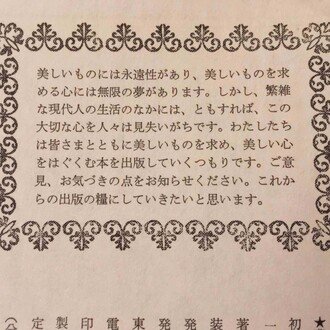 美しいものには永遠性があり、美しいものを求
める心には無限の夢があります。しかし、繁雑
な現代人の生活のなかには、ともすれば、この
大切な心を人々は見失いがちです。わたしたち
は皆さまとともに美しいものを求め、美しい心
をはぐくむ本を出版していくつもりです。ご意
見、お気づきの点をお知らせください。これか
らの出版の糧にしていきたいと思います。
★
初
一
著
装
発
発
東
電
印
製
定
（八